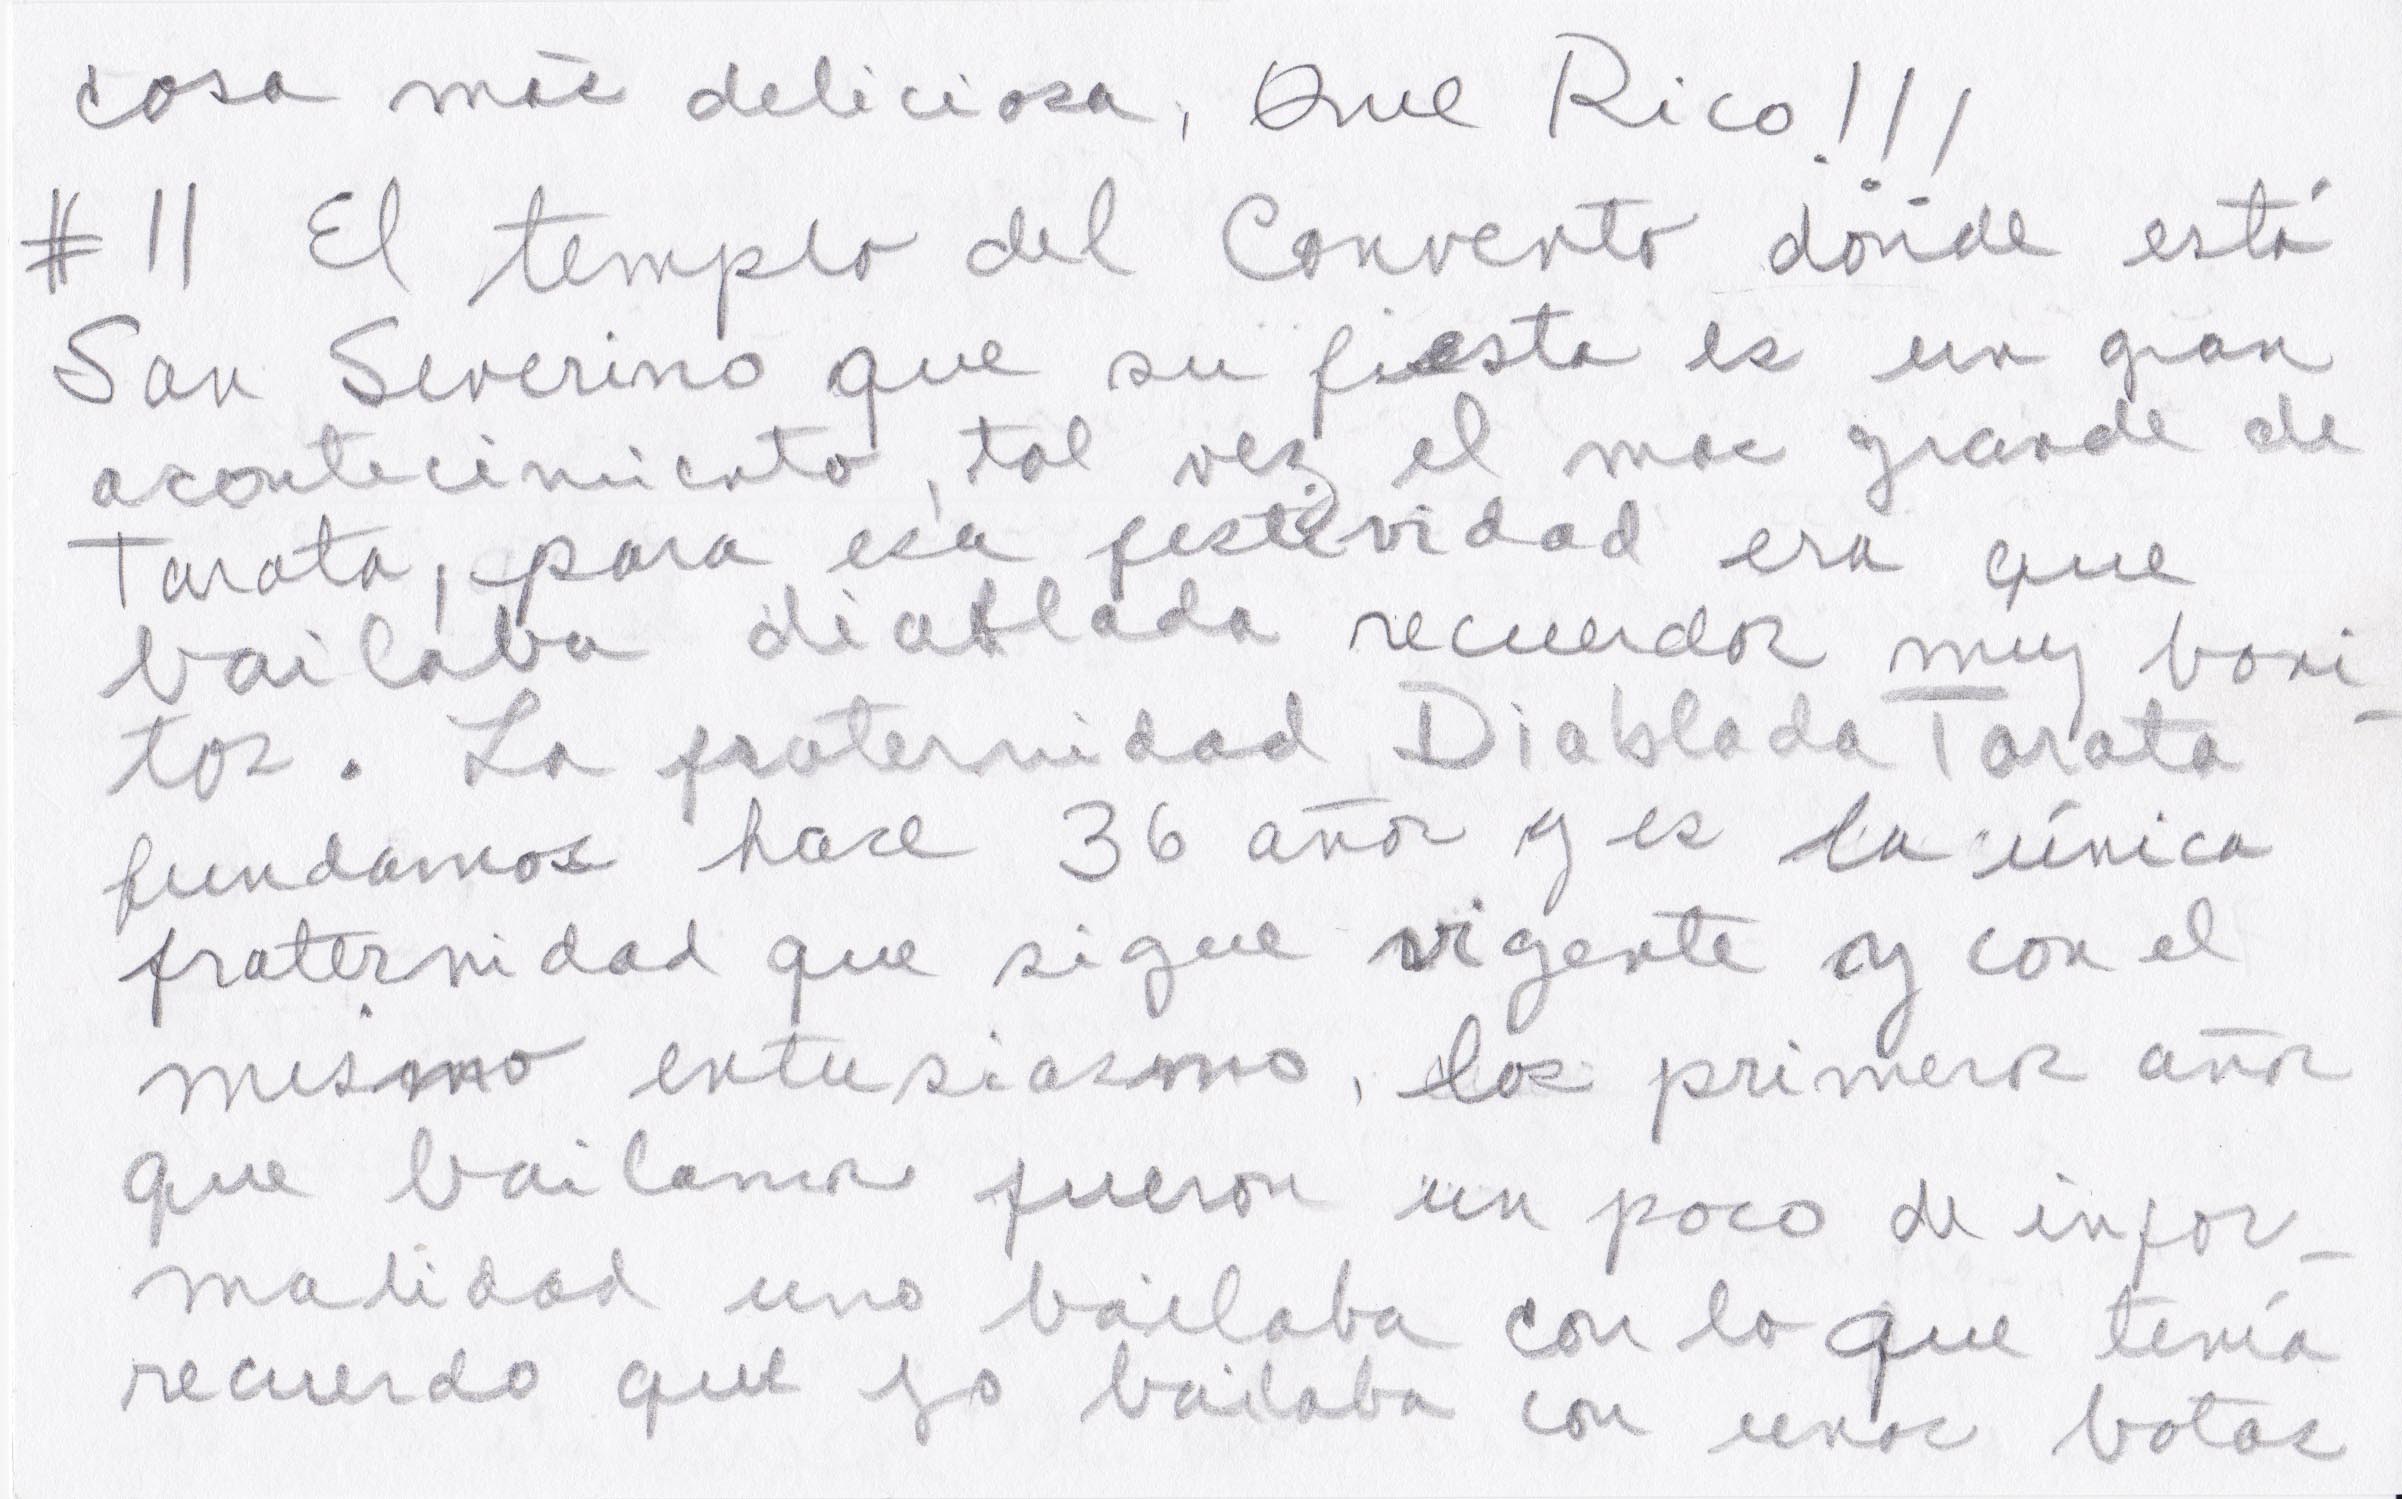 cosa más deliciosa, Que Rico!!!
#11 El templo del Convento donde está
San Severino que su fiesta es un gran
acontecimiento, tal vez el mas grande de
Tarata, para esa festividad era que
bailaba diablada recuerdos muy boni-
tos. La fraternidad Diablada Tarata
fundamos hace 36 años y es la única
fraternidad que sigue vigente y con el
mismo entusiasmo, los primeros años
que bailamos fueron un poco de infor-
malidad uno bailaba con lo que tenía
recuerdo que yo bailaba con unas botas